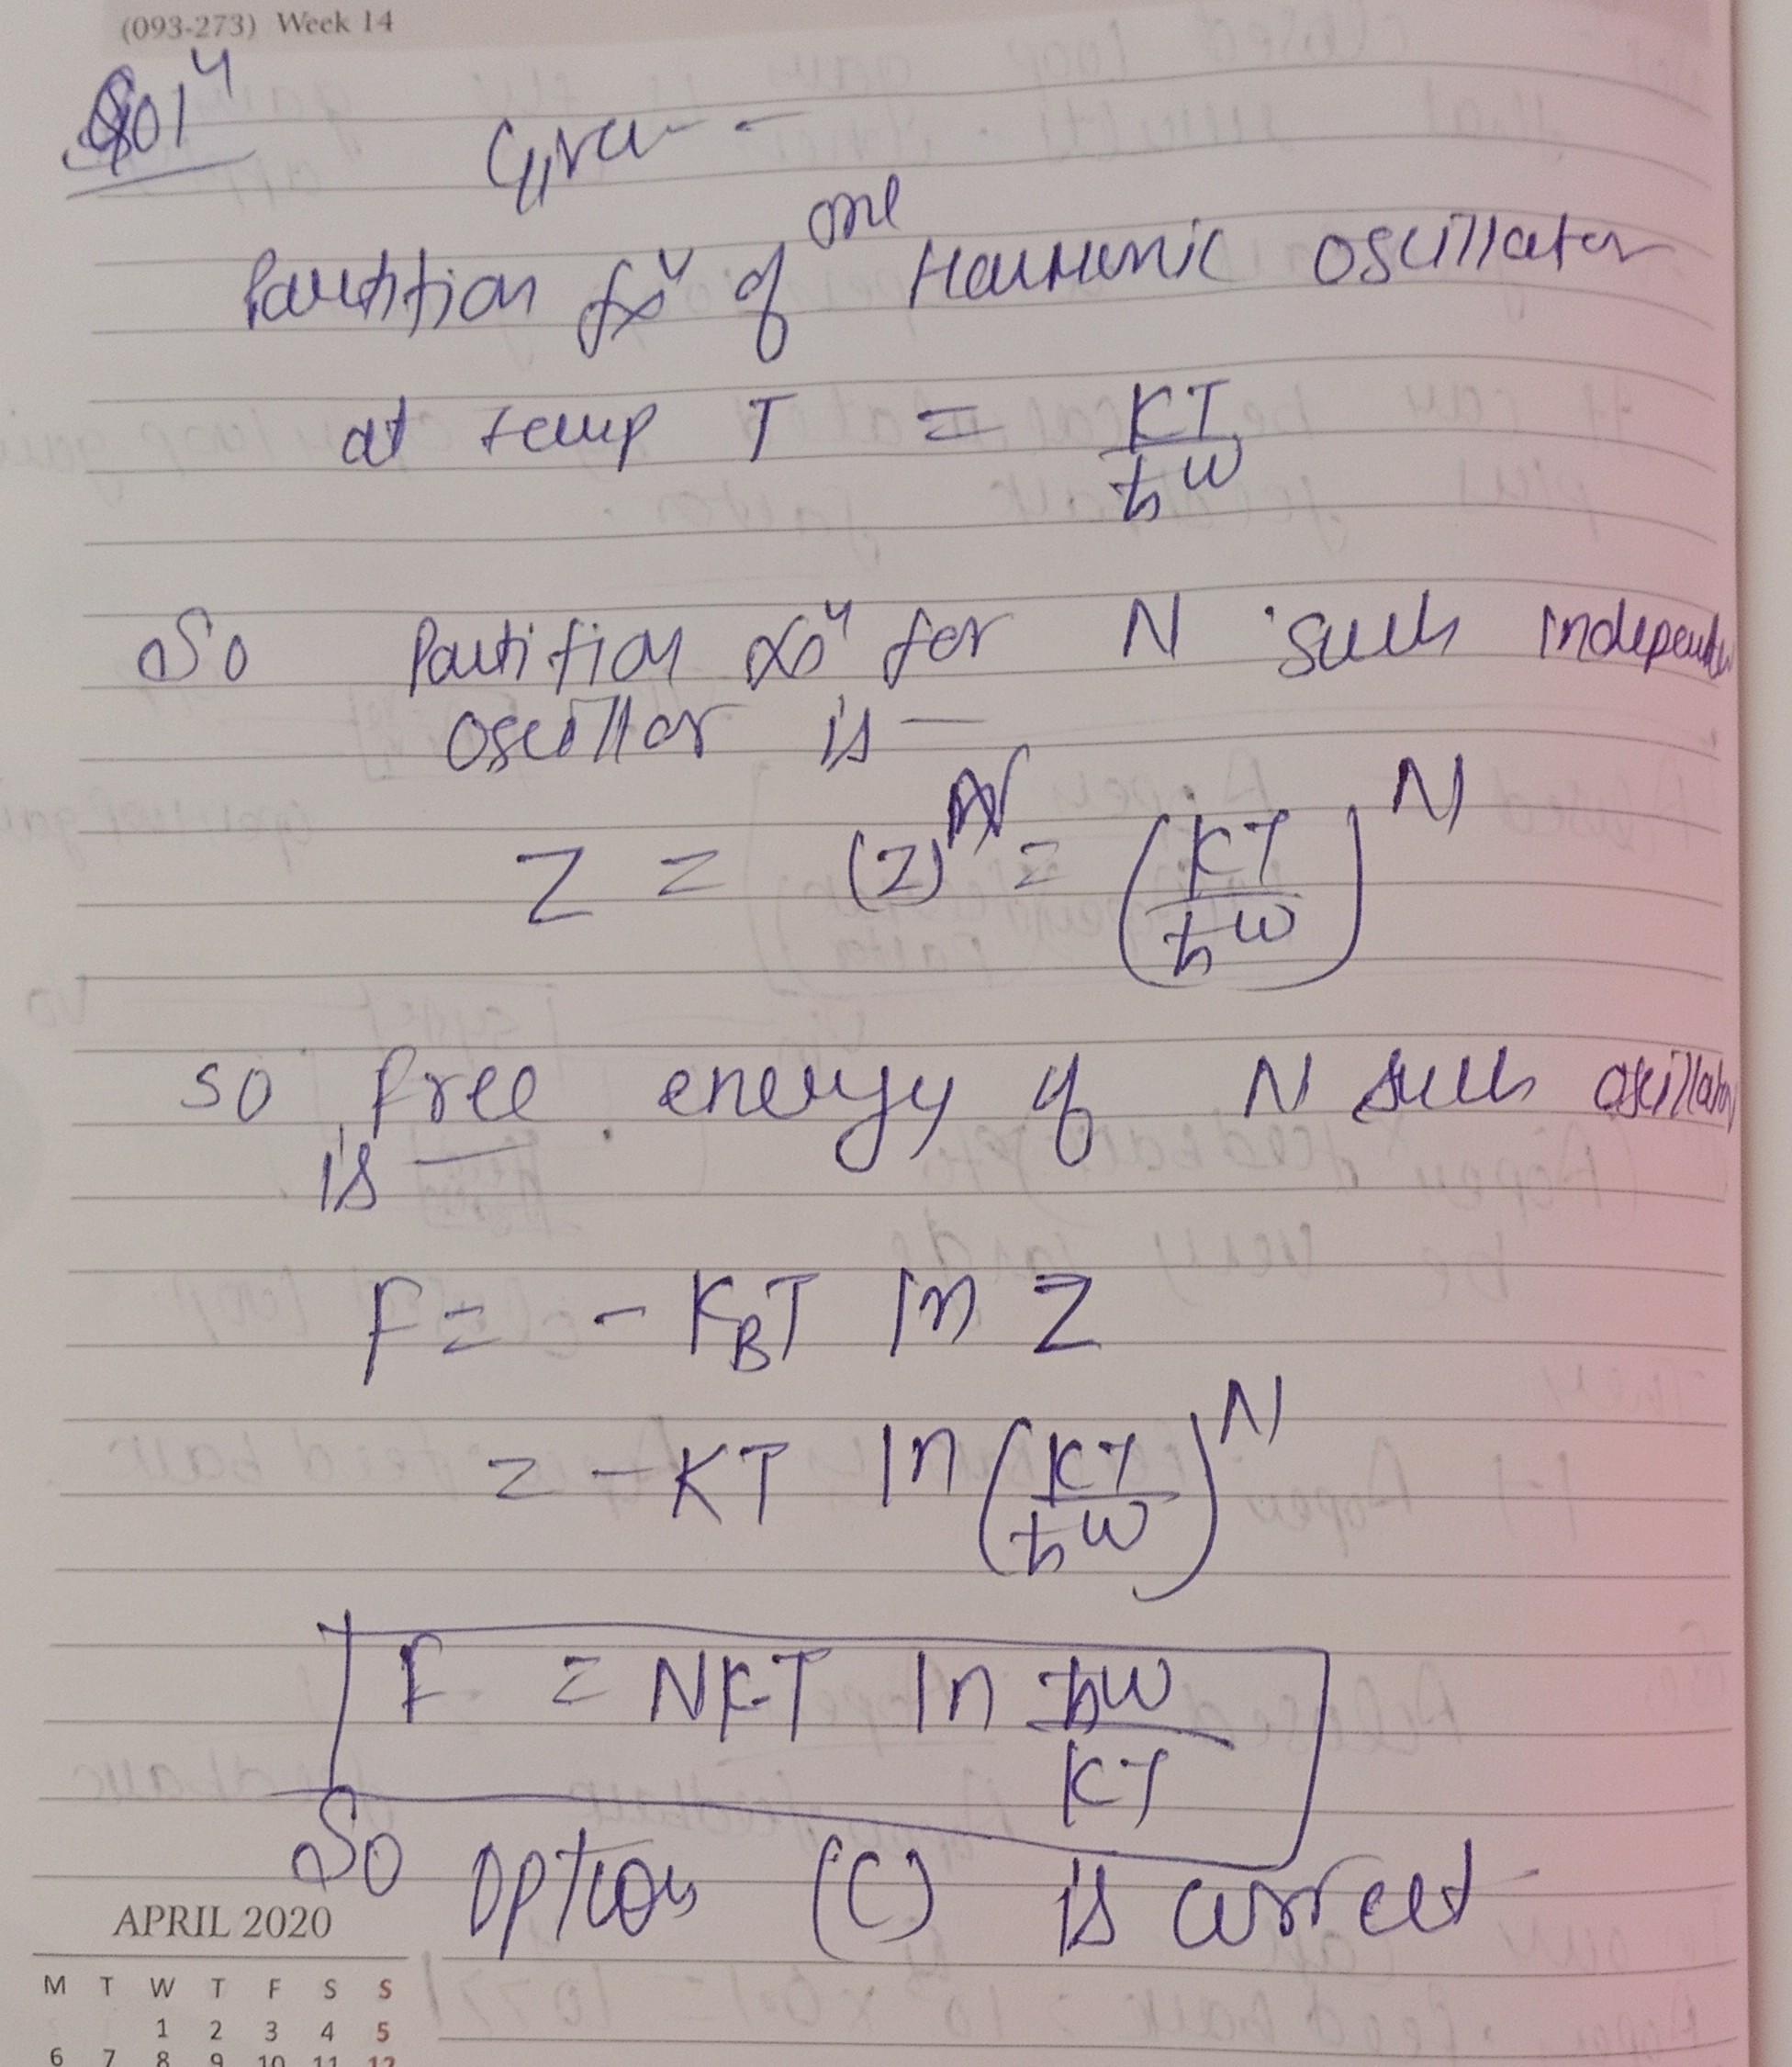 (093-273) Week 14
Solⁿ
Given -
Partition fxⁿ of one Harmonic oscillator
at temp T = KT/ħω
So Partition fxⁿ for N such independent
oscillor is —
Z = (Z)^N = (KT/ħω)^N
so free energy of N such oscillator
is —
F = - K_BT ln Z
= -KT ln (KT/ħω)^N
F = NKT ln ħω/KT
So option (C) is correct
APRIL 2020
M T W T F S S
1 2 3 4 5
6 7 8 9 10 11 12